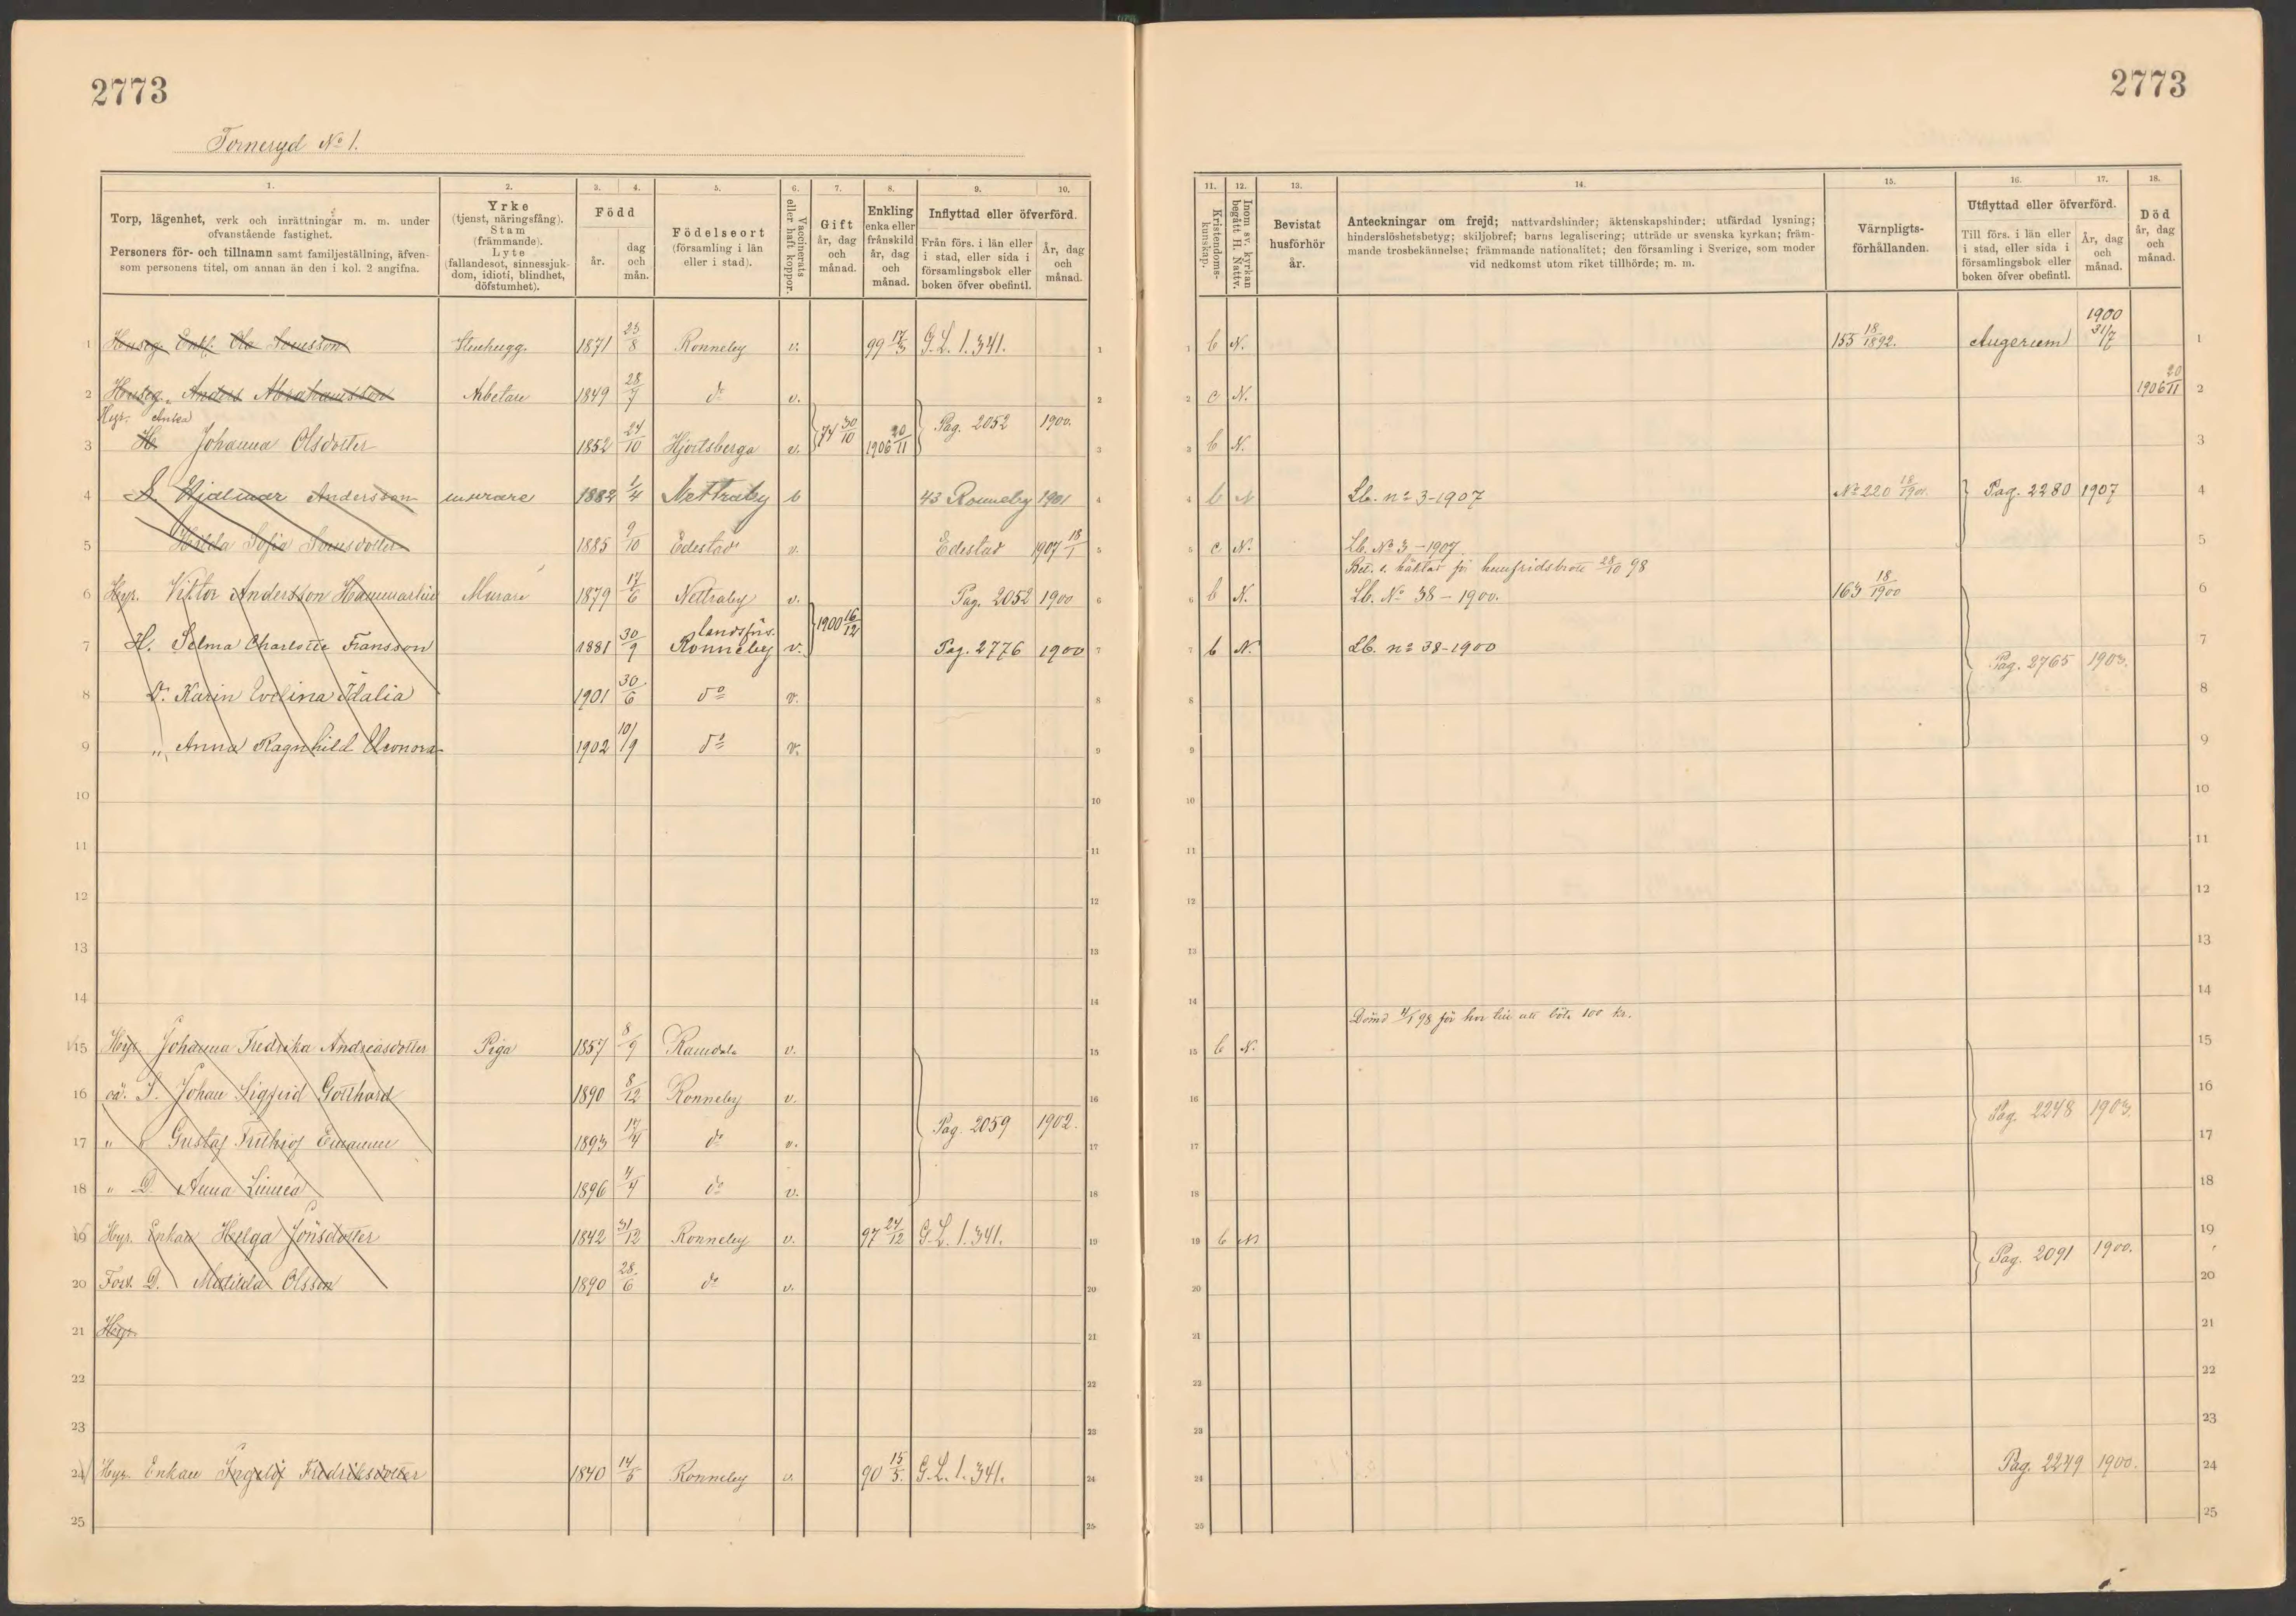 2773
Torneryd No 1.
1.
Torp, lägenhet, verk och inrättningar m. m. under
ofvanstående fastighet.
Personers för- och tillnamn samt familjeställning, äfven-
som personens titel, om annan än den i kol. 2 angifna.
2.
Yrke
(tjenst, näringsfång).
Stam
(främmande).
Lyte
(fallandesot, sinnessjuk-
dom, idioti, blindhet,
döfstumhet).
3. 4.
Född
år.
dag
och
mån.
5.
Födelseort
(församling i län
eller i stad).
6.
Vaccinerats
eller haft koppor.
7.
Gift
år, dag
och
månad.
8.
Enkling
enka eller
frånskild
år, dag
och
månad.
9. 10.
Inflyttad eller öfverförd.
Från förs. i län eller
i stad, eller sida i
församlingsbok eller
boken öfver obefintl.
År, dag
och
månad.
1 Huseg. Enkl. Ola Svensson Stenhugg. 1871 23/8 Ronneby v. 99 17/3 G.L. 1.341. 1
2 Huseg. Anders Abrahamsson Arbetare 1849 28/7 do v. 2
Hyr. Enka
3 H. Johanna Olsdotter 1852 24/10 Hjortsberga v. 74 30/10 1906 20/11 Pag. 2052 1900. 3
4 S. Hjalmar Andersson murare 1882 1/4 Nettraby b 43 Ronneby 1901 4
5 Hilda Sofia Svensdotter 1885 9/10 Edestad v. Edestad 1907 18/1 5
6 Hyr. Viktor Andersson Hammarlin Murare 1879 17/6 Nettraby v. 1900 16/12 Pag. 2052 1900 6
landsförs.
7 H. Selma Charlotte Fransson 1881 30/9 Ronneby v. Pag. 2776 1900 7
8 D. Karin Evelina Idalia 1901 30/6 do v.
9 " Anna Ragnhild Eleonora 1902 10/9 do v. 9
10 10
11 11
12 12
13 13
14 14
15 Hyr. Johanna Fredrika Andreasdotter Piga 1857 8/9 Ramdala v. 15
16 oä. S. Johan Sigfrid Gotthard 1890 8/12 Ronneby v. 16
17 " " Gustaf Frithiof Emanuel 1893 17/4 do v. Pag. 2059 1902. 17
18 " D. Anna Linnéa 1896 4/4 do v. 18
19 Hyr. Enkan Helga Jönsdotter 1842 31/12 Ronneby v. 97 24/12 G.L. 1.341. 19
20 Fost. D. Matilda Olsson 1890 28/6 do v. 20
21 Hyr. 21
22 22
23 23
24 Hyr. Enkan Ingelöf Fredriksdotter 1840 14/5 Ronneby v. 90 15/5. G.L. 1.341. 24
25 25
2773
11.
Kristendoms-
kunskap.
12.
Inom sv. kyrkan
begått H. Nattv.
13.
Bevistat
husförhör
år.
14.
Anteckningar om frejd; nattvardshinder; äktenskapshinder; utfärdad lysning;
hinderslöshetsbetyg; skiljobref; barns legalisering; utträde ur svenska kyrkan; främ-
mande trosbekännelse; främmande nationalitet; den församling i Sverige, som moder
vid nedkomst utom riket tillhörde; m. m.
15.
Värnpligts-
förhållanden.
16. 17.
Utflyttad eller öfverförd.
Till förs. i län eller
i stad, eller sida i
församlingsbok eller
boken öfver obefintl.
År, dag
och
månad.
18.
Död
år, dag
och
månad.
1 b N. 155 18/1892. Augerum 1900 31/7 1
2 c N. 1906 20/11 2
3 b N. 3
4 b N Lb. no 3-1907 No 220 18/1901 Pag. 2280 1907 4
5 c N. Lb. No 3-1907 5
Böt. o. häktad för hemfridsbrott 28/10 98
6 b N. Lb. No 38 - 1900. 163 18/1900 6
7 b N. Lb. no 38-1900 7
Pag. 2765 1903.
8 8
9 9
10 10
11 11
12 12
13 13
14 14
Dömd 4/1 98 för hor till att böta 100 kr.
15 b N. 15
16 Pag. 2248 1903. 16
17 17
18 18
19 b N 19
Pag. 2091 1900.
20 20
21 21
22 22
23 23
24 Pag. 2249 1900. 24
25 25